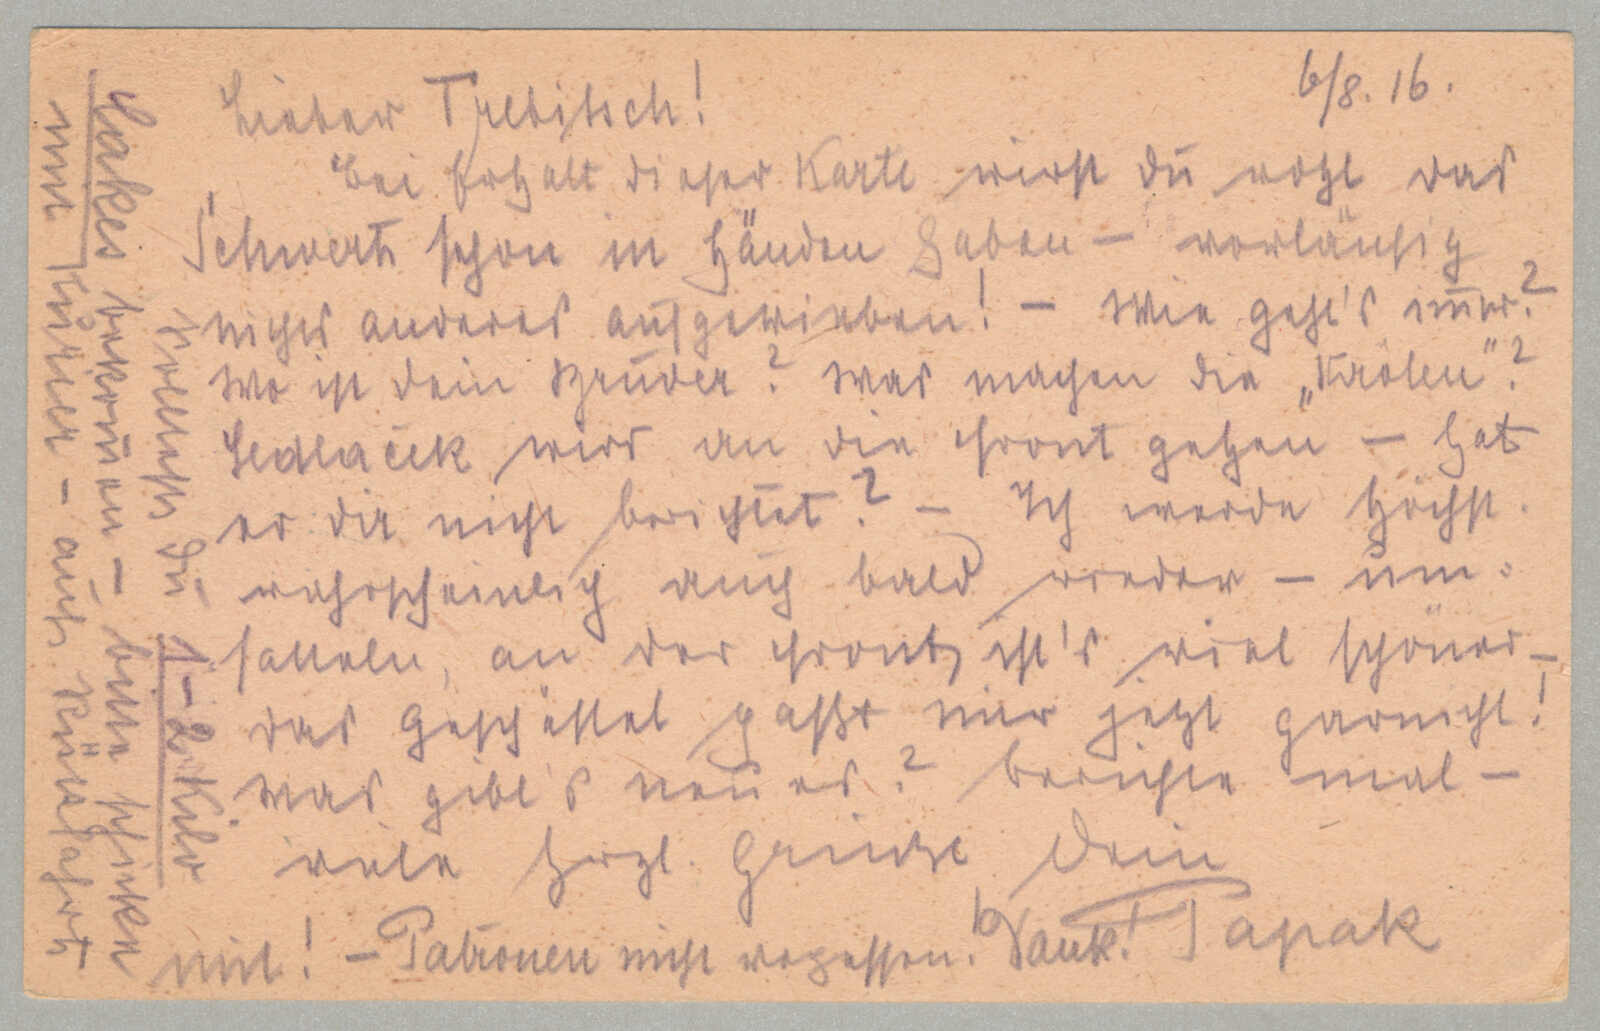 6/8. 16.
Lieber Trebitsch!
Bei Erhalt dieser Karte wirst Du wohl das
Schwert schon in Händen haben – vorläufig
nichts anderes aufgetrieben! – Wie geht's immer?
Wo ist Dein Bruder? Was machen die „Kaolen"?
Sedlaček wird an die Front gehen – hat
er dir nicht berichtet? – Ich werde höchst-
wahrscheinlich auch bald wieder – um-
satteln, an der Front ist's viel schöner –
das paßt mir jetzt garnicht!
Was gibt's neues? Berichte mal –
viele hrzl. Grüße Dein
Papak
Solltest Du 1–2 Kilo
Cakes bekommen – bitte schicke
mir – auch
mit! – Patronen nicht vergessen! Dank!